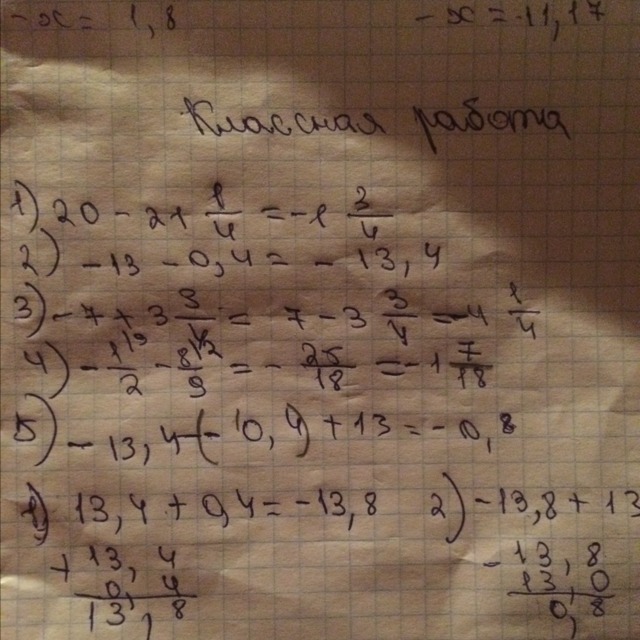 -x = 1,8 -x = 11,17
Классная работа
1) 20 - 21 1/4 = -1 2/4
2) -13 - 0,4 = -13,4
3) -7 + 3 3/4 = 7 - 3 3/4 = -4 1/4
4) - 1/2 - 8/9 = - 25/18 = -1 7/18
5) -13,4 - (-10,4) + 13 = -0,8
1) 13,4 + 0,4 = -13,8 2) -13,8 + 13
+ 13,4 - 13,8
0,4 13,0
13,8 0,8